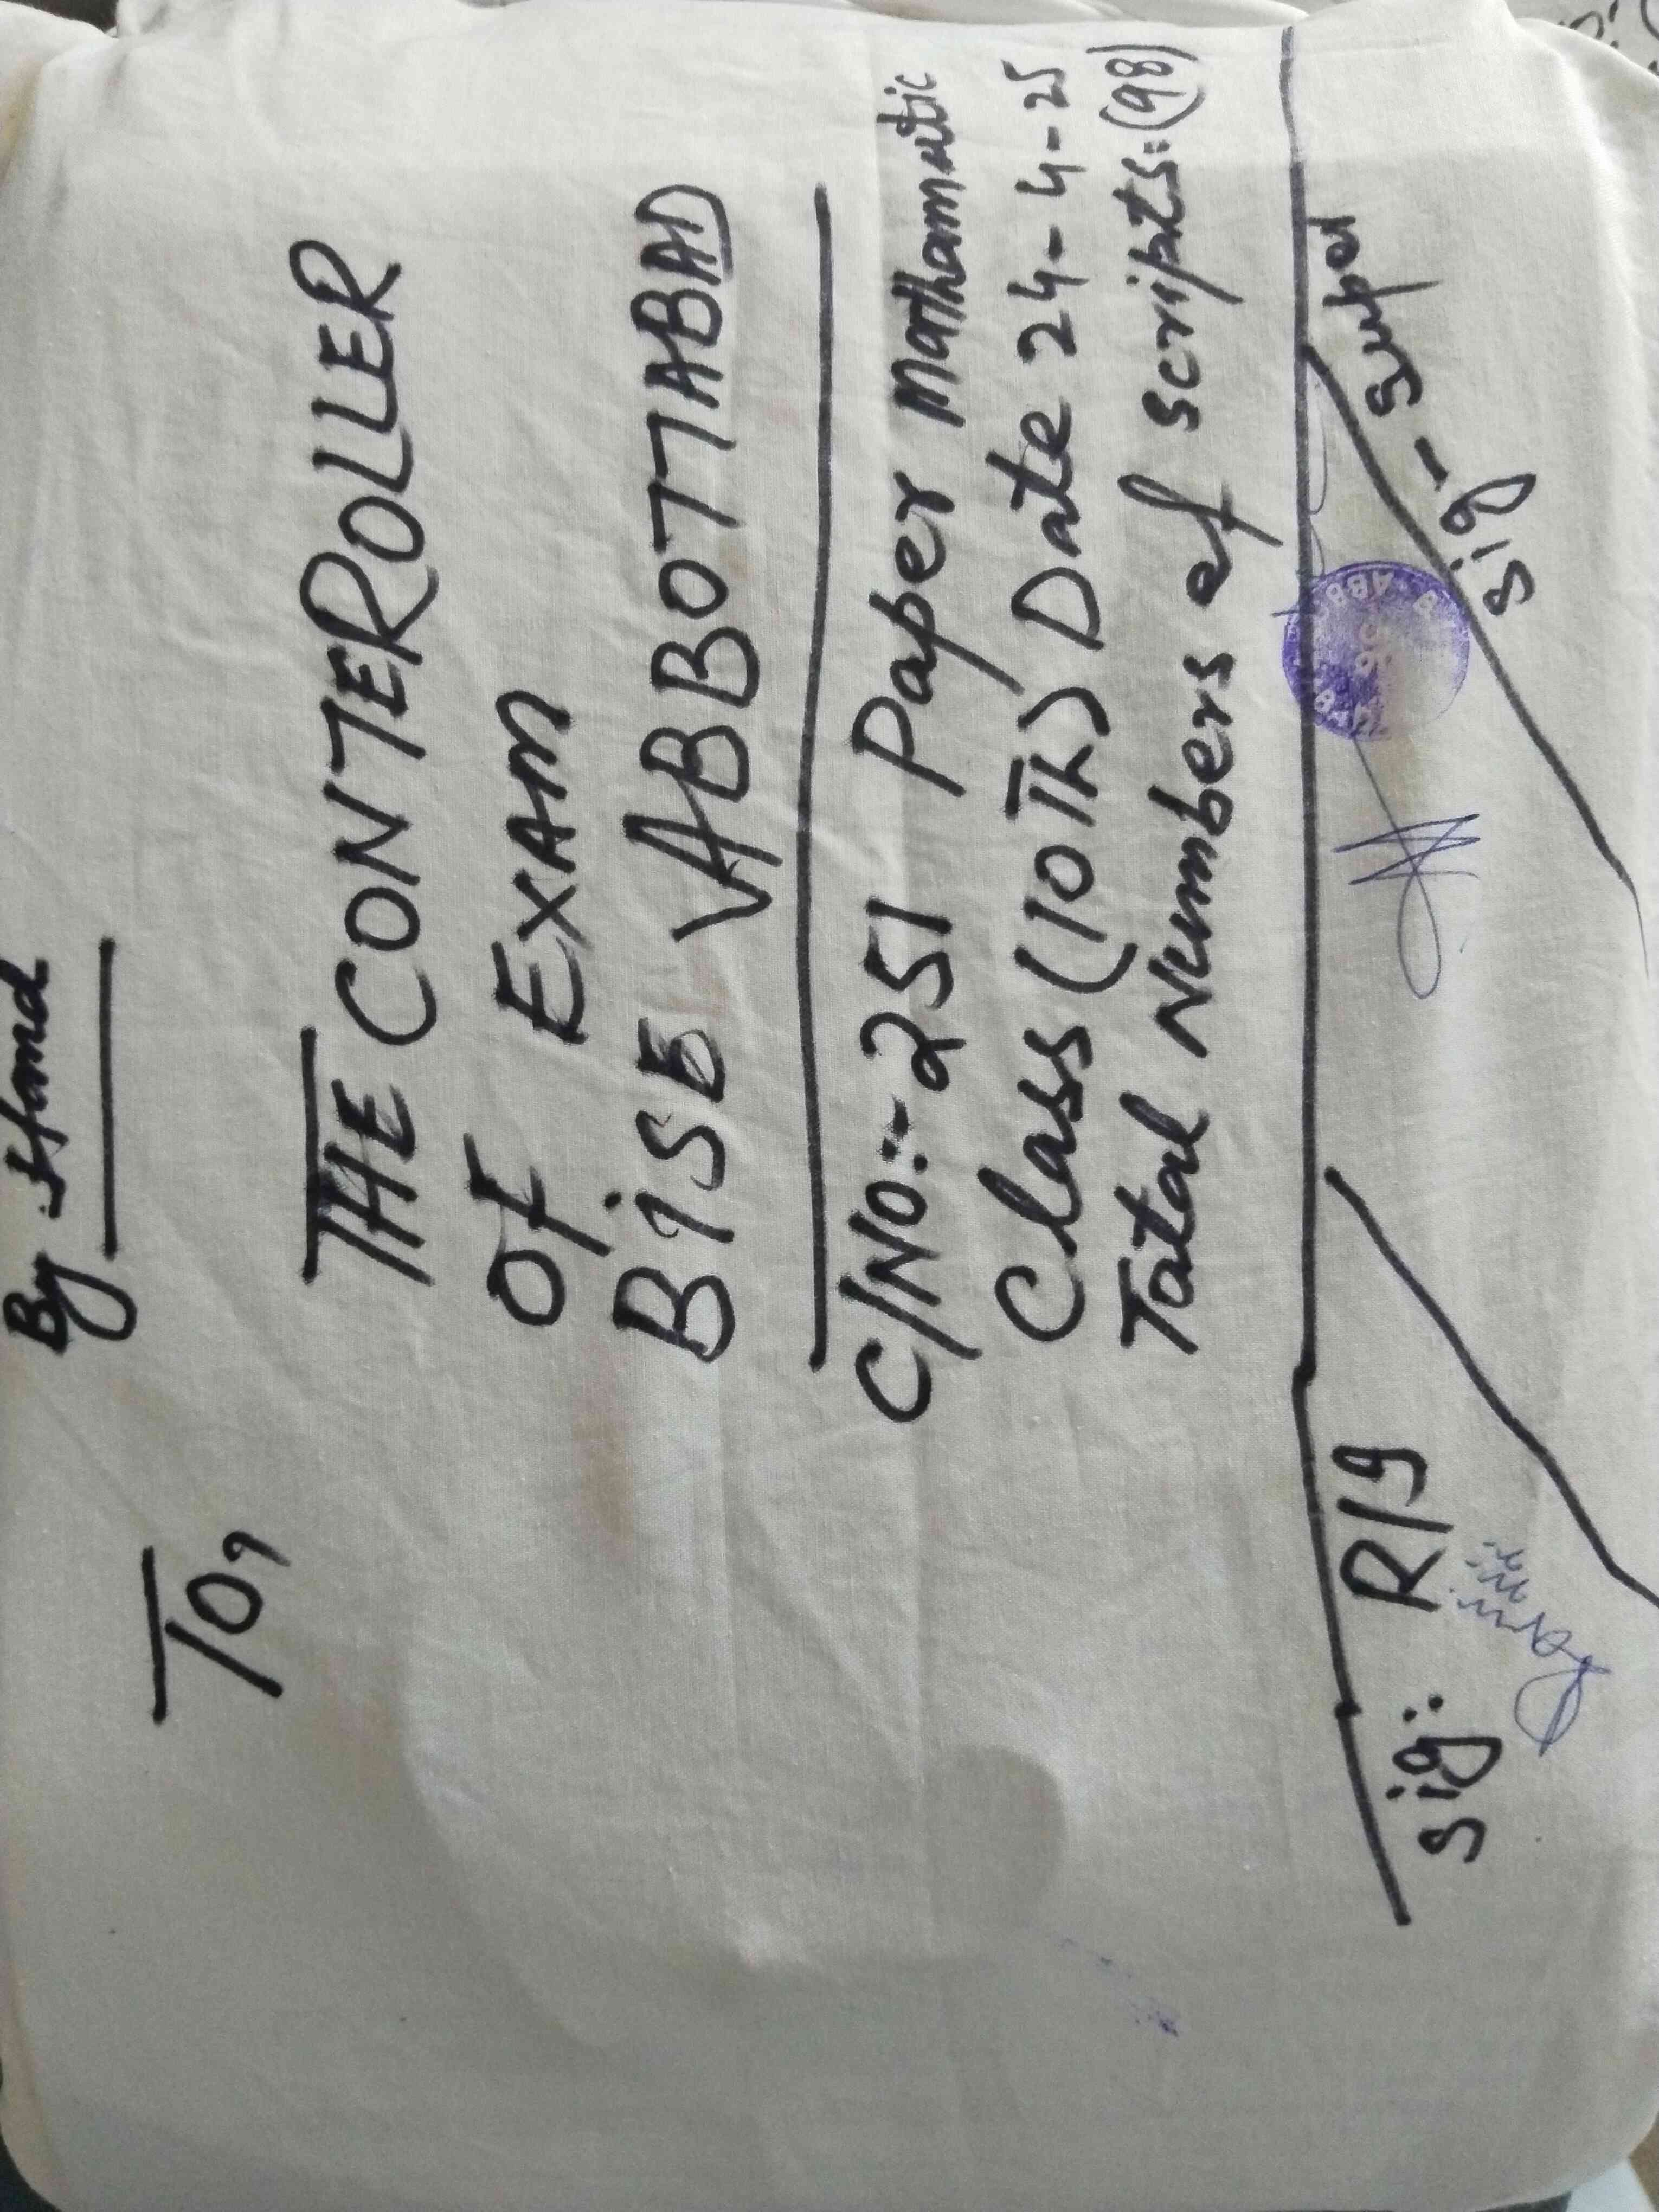 By Hand
TO,
THE CONTEROLLER
OF EXAM
BISE ABBOTTABAD
C/NO:- 251 Paper Mathamatic
Class (10Th) Date 24-4-25
Total Numbers of scripts:(98)
Sig: R/9
Sig- Super